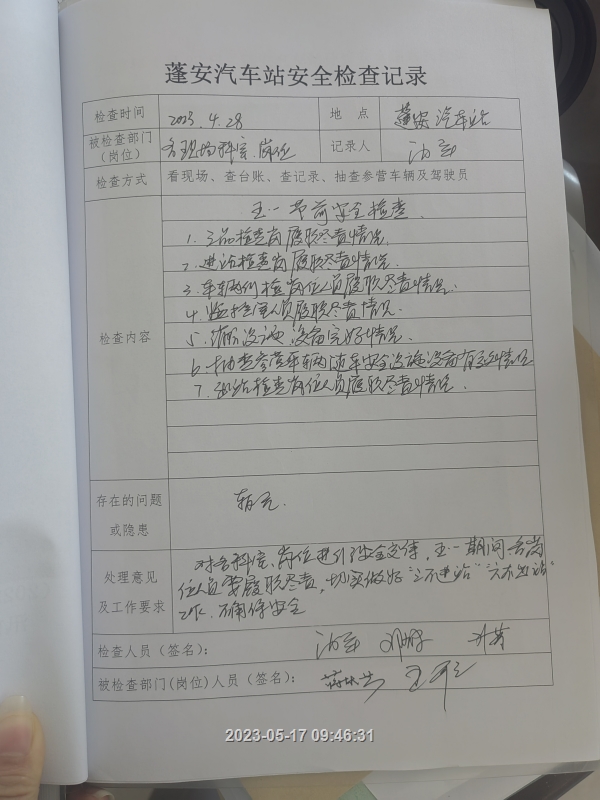 蓬安汽车站安全检查记录
检查时间 2023.4.28 地 点 蓬安汽车站
被检查部门（岗位） 各科室、岗位 记录人
检查方式 看现场、查台账、查记录、抽查参营车辆及驾驶员
检查内容
五一节前安全检查
1. 三品检查岗履职尽责情况
2. 进站检查岗履职尽责情况.
3. 车辆例检岗位人员履职尽责情况.
4. 监控室人员履职尽责情况
5. 消防设施、设备完好情况.
6. 抽查参营车辆随车安全设施设备有效情况
7. 出站检查岗位人员履职尽责情况.
存在的问题或隐患 暂无.
处理意见及工作要求
对各科室、岗位进行了安全交待，五一期间各岗
位人员要履职尽责，切实做好“三不进站”“六不出站”
工作，确保安全
检查人员（签名）：
被检查部门(岗位)人员（签名）：
2023-05-17 09:46:31